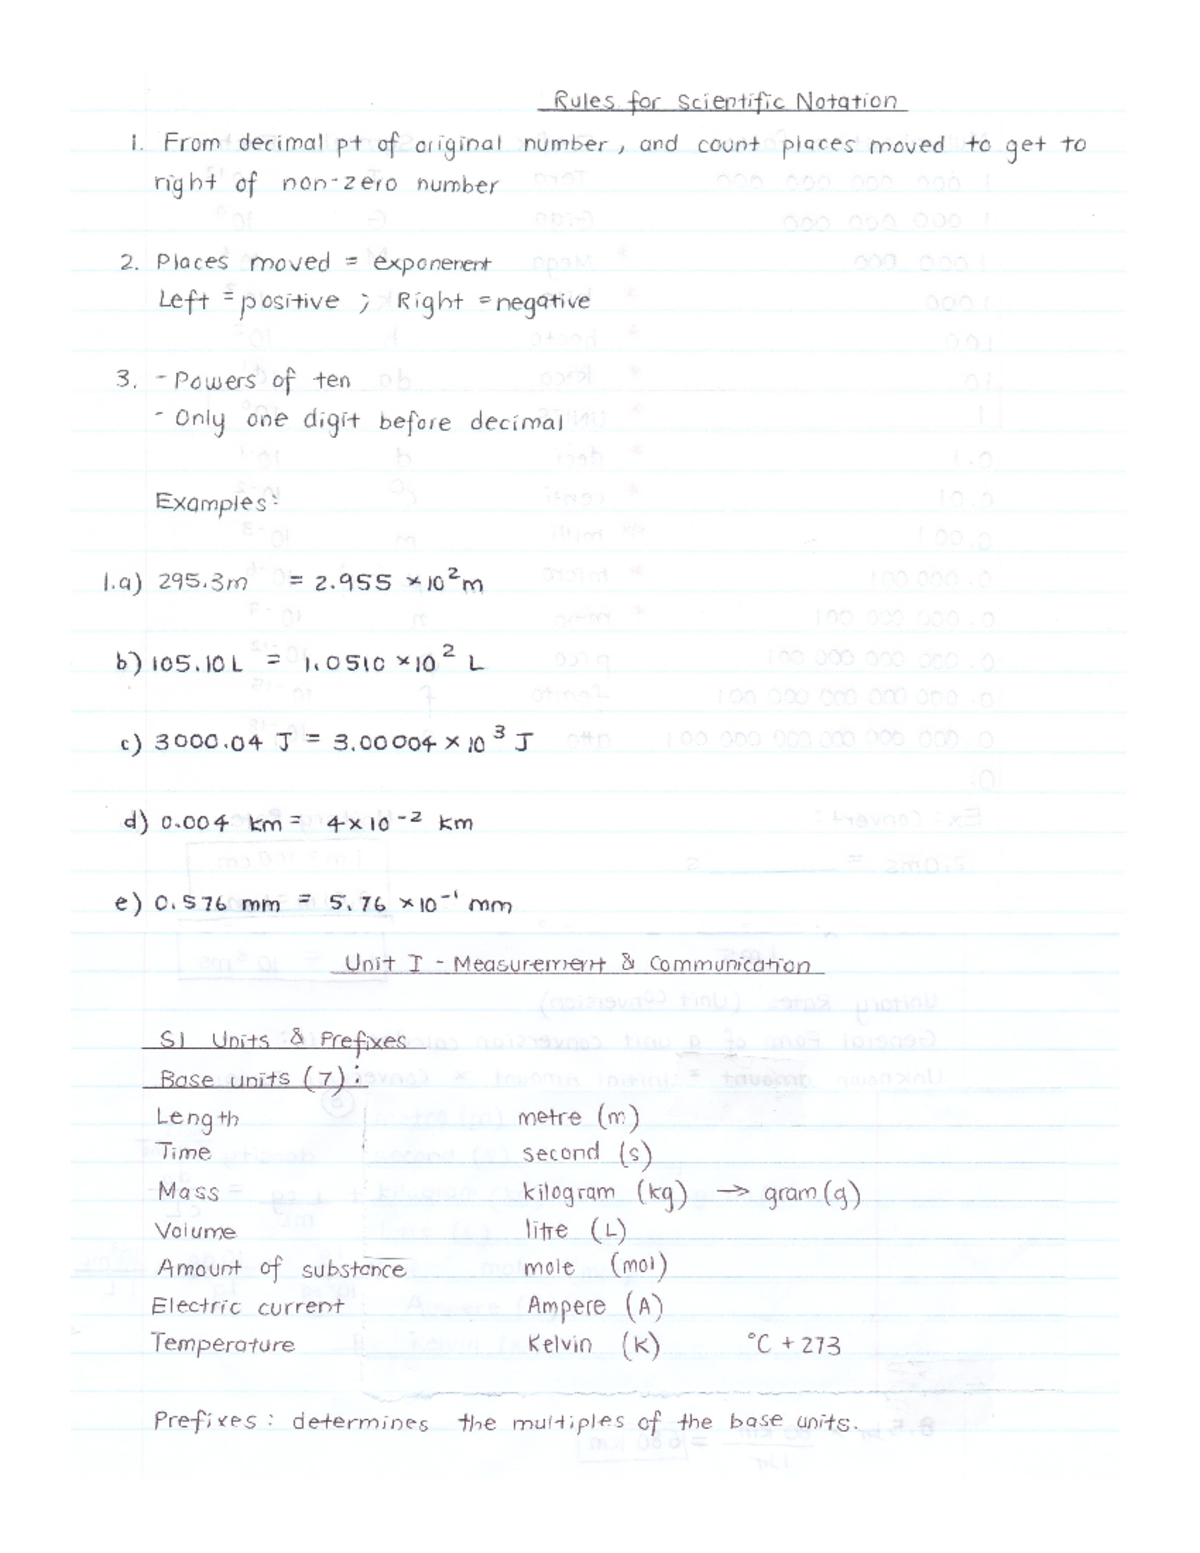 Rules for Scientific Notation
1. From decimal pt of original number, and count places moved to get to
right of non-zero number
2. Places moved = exponenent
Left = positive ; Right = negative
3. - Powers of ten
- Only one digit before decimal
Examples:
1.a) 295.3m = 2.955 ×10² m
b) 105.10 L = 1.0510 ×10² L
c) 3000.04 J = 3.00004 × 10³ J
d) 0.004 km = 4×10⁻² km
e) 0.576 mm = 5.76 ×10⁻¹ mm
Unit I - Measurement & Communication
SI Units & Prefixes
Base units (7):
Length metre (m)
Time second (s)
Mass kilogram (kg) → gram (g)
Volume litre (L)
Amount of substance mole (mol)
Electric current Ampere (A)
Temperature Kelvin (K) °C + 273
Prefixes: determines the multiples of the base units.